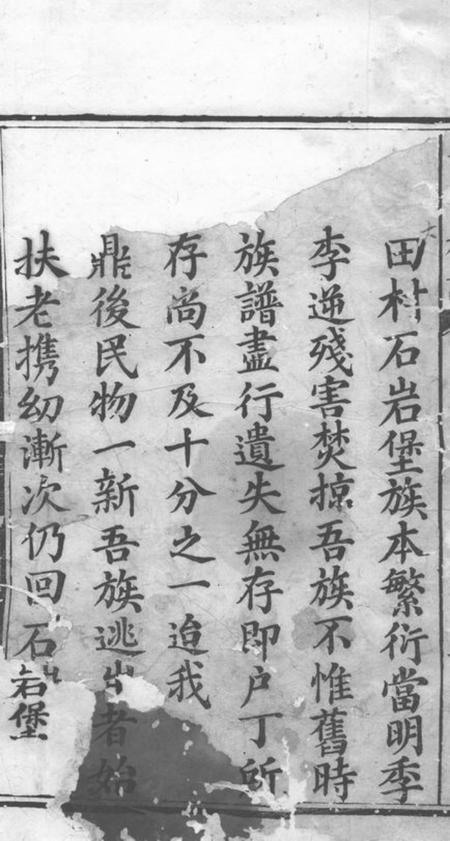 田村石岩堡族本繁衍當明季
李逆殘害焚掠吾族不惟舊時
族譜盡行遺失無存即戶丁所
存尚不及十分之一迨我
鼎後民物一新吾族逃出者始
扶老携幼漸次仍回石岩堡